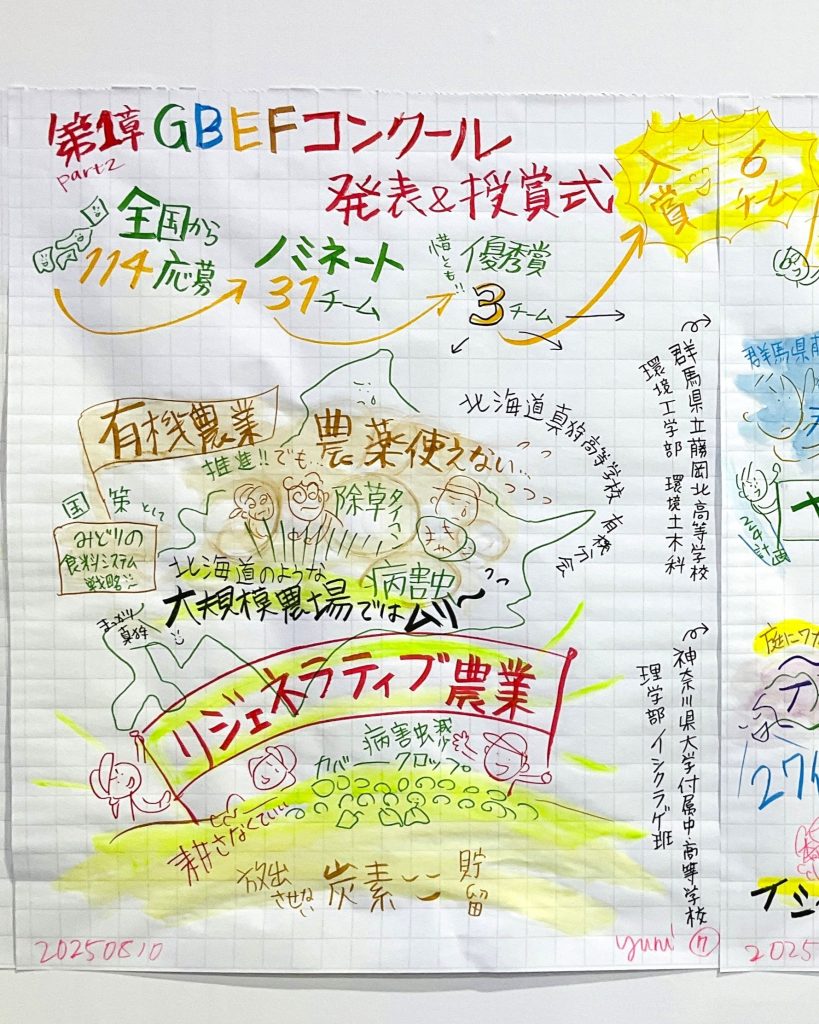 第1章 GBEFコンクール
part2
発表&授賞式
入賞 6チーム
全国から
114応募
ノミネート
31チーム
惜しくも!!
優秀賞
3チーム
有機農業
推進!!でも…
農薬使えない…
国策として
みどりの
食料システム
戦略
除草
病害虫
北海道のような
大規模農場ではムリ〜
真狩
北海道真狩高等学校 有機
群馬県立藤岡北高等学校
環境工学部 環境土木科
リジェネラティブ農業
病害虫減り
カバークロップ
耕さなくていい…
放出
させない
炭素
貯留
神奈川県大学付属中・高等学校
理学部イシクラゲ班
20250810
yuni 7
群馬県
計画
庭にワナ
27
イシ
2025